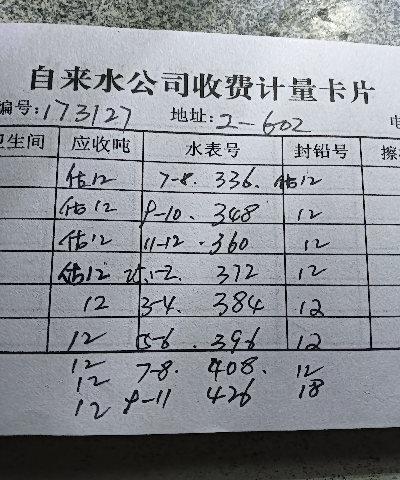 自来水公司收费计量卡片
编号:173127 地址:2-602 电
卫生间 应收吨 水表号 封铅号 擦
估12 7-8. 336. 估12
估12 9-10. 348 12
估12 11-12. 360 12
估12 25.1-2. 372 12
12 3-4. 384 12
12 5-6. 396 12
12 7-8. 408. 12
12
12 9-11 426 18